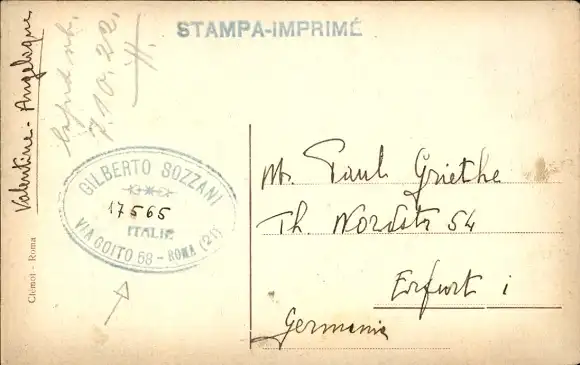 STAMPA-IMPRIMÉ
Valentine - Angelique
7.10.22.
GILBERTO SOZZANI
17565
ITALIE
VIA GOITO 58 - ROMA (21)
Clémot - Roma
Mr. Paul Griethe
Th. Nordstr 54
Erfurt i
Germania